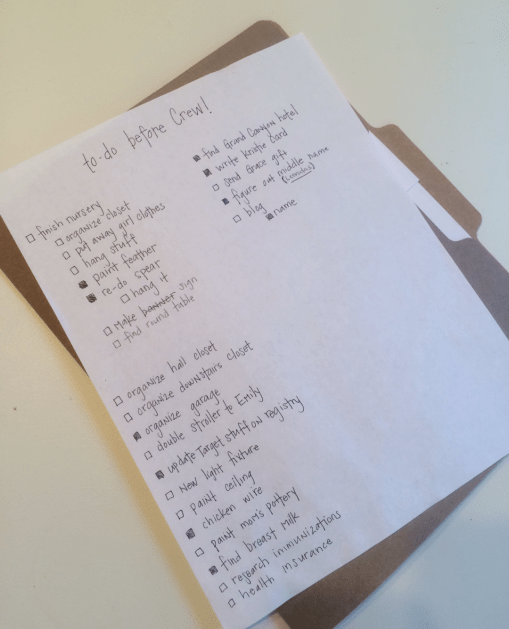 to-do before Crew!
finish nursery
organize closet
put away girl clothes
hang stuff
paint feather
re-do spear
hang it
Make banner sign
find round table
organize hall closet
organize downstairs closet
organize garage
double stroller to Emily
update Target stuff on registry
New light fixture
paint ceiling
chicken wire
paint mom's pottery
find breast milk
research immunizations
health insurance
find Grand Canyon hotel
write Kristie card
send Grace gift
figure out middle name
blog
name